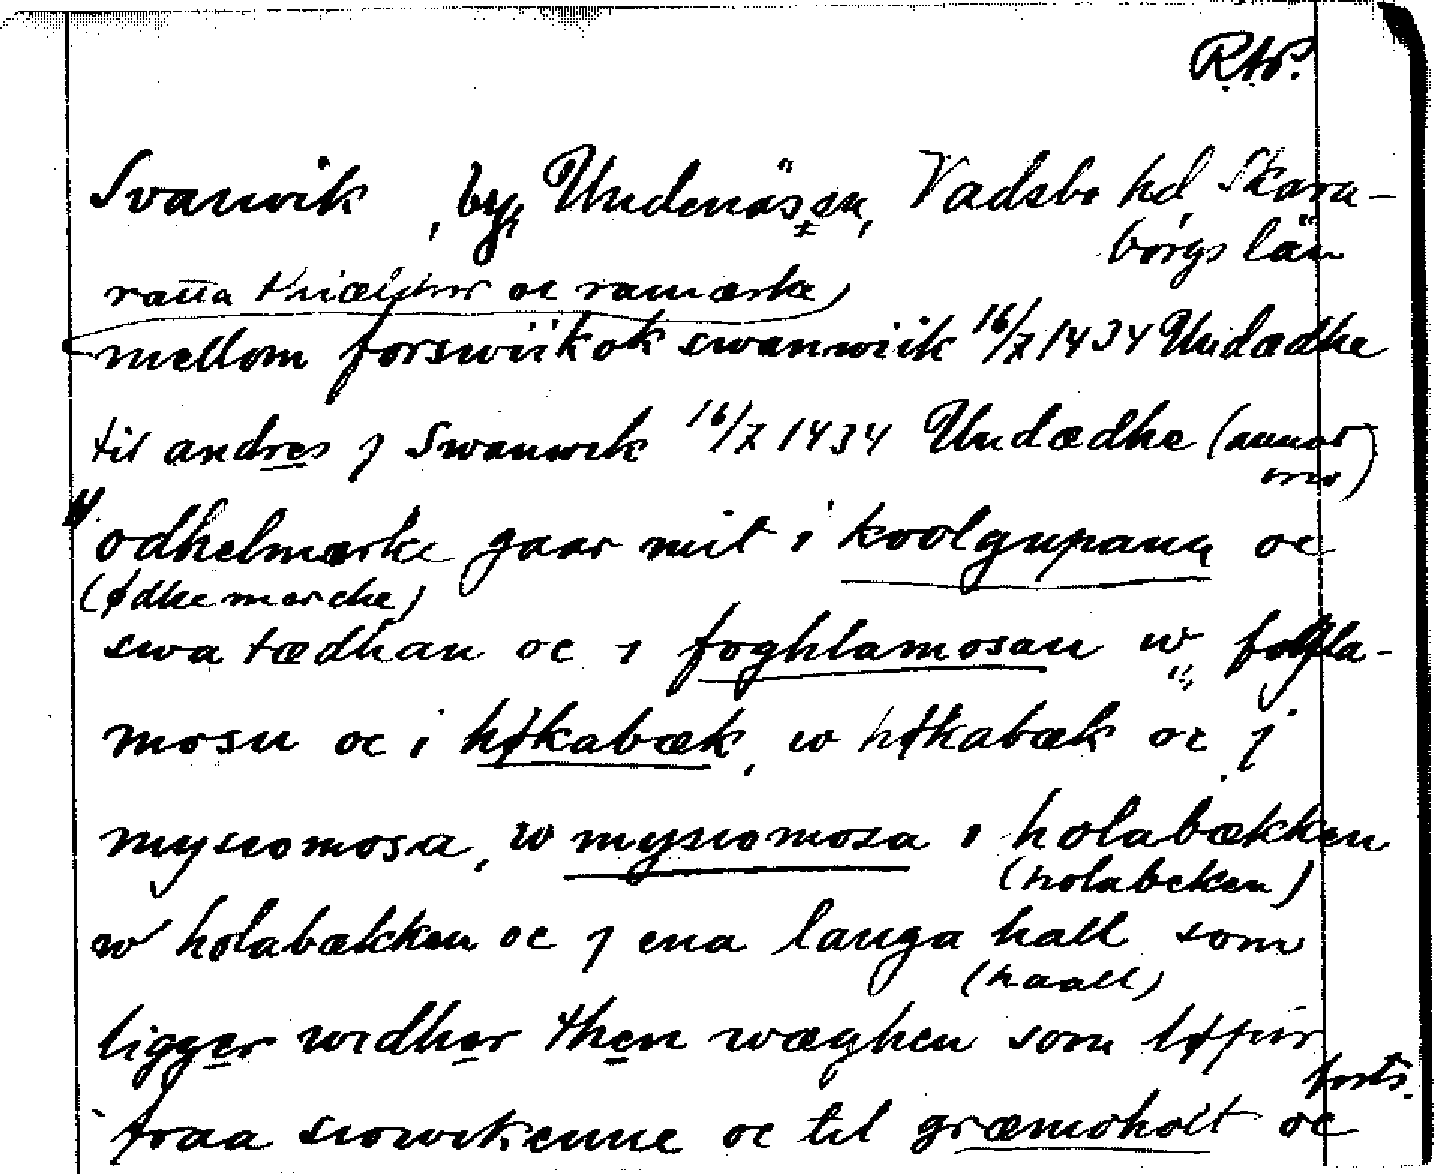 RAP.
Svanvik, by, Undenäs sn, Vadsbo hd, Skara-
borgs län
ratta oc ramærke
mellom forswiik ok swanwiik 16/7 1434 Undædhe
til andres j Swanwik 16/7 1434 Undædhe (annat
ons)
odhelmærke gaar mit i koolgupann oc
(ødhemerche)
swa tædhan oc i foghlamosan w fogla-
mosu oc i høkabæk, w høkabæk oc j
mysiomosa, w mysiomosa i holabækken
(holabeken)
w holabækken oc j ena langa hall som
(haall)
ligger widher then wæghen som løpir
forts.
fraa siowikenne oc til græmoholt oc